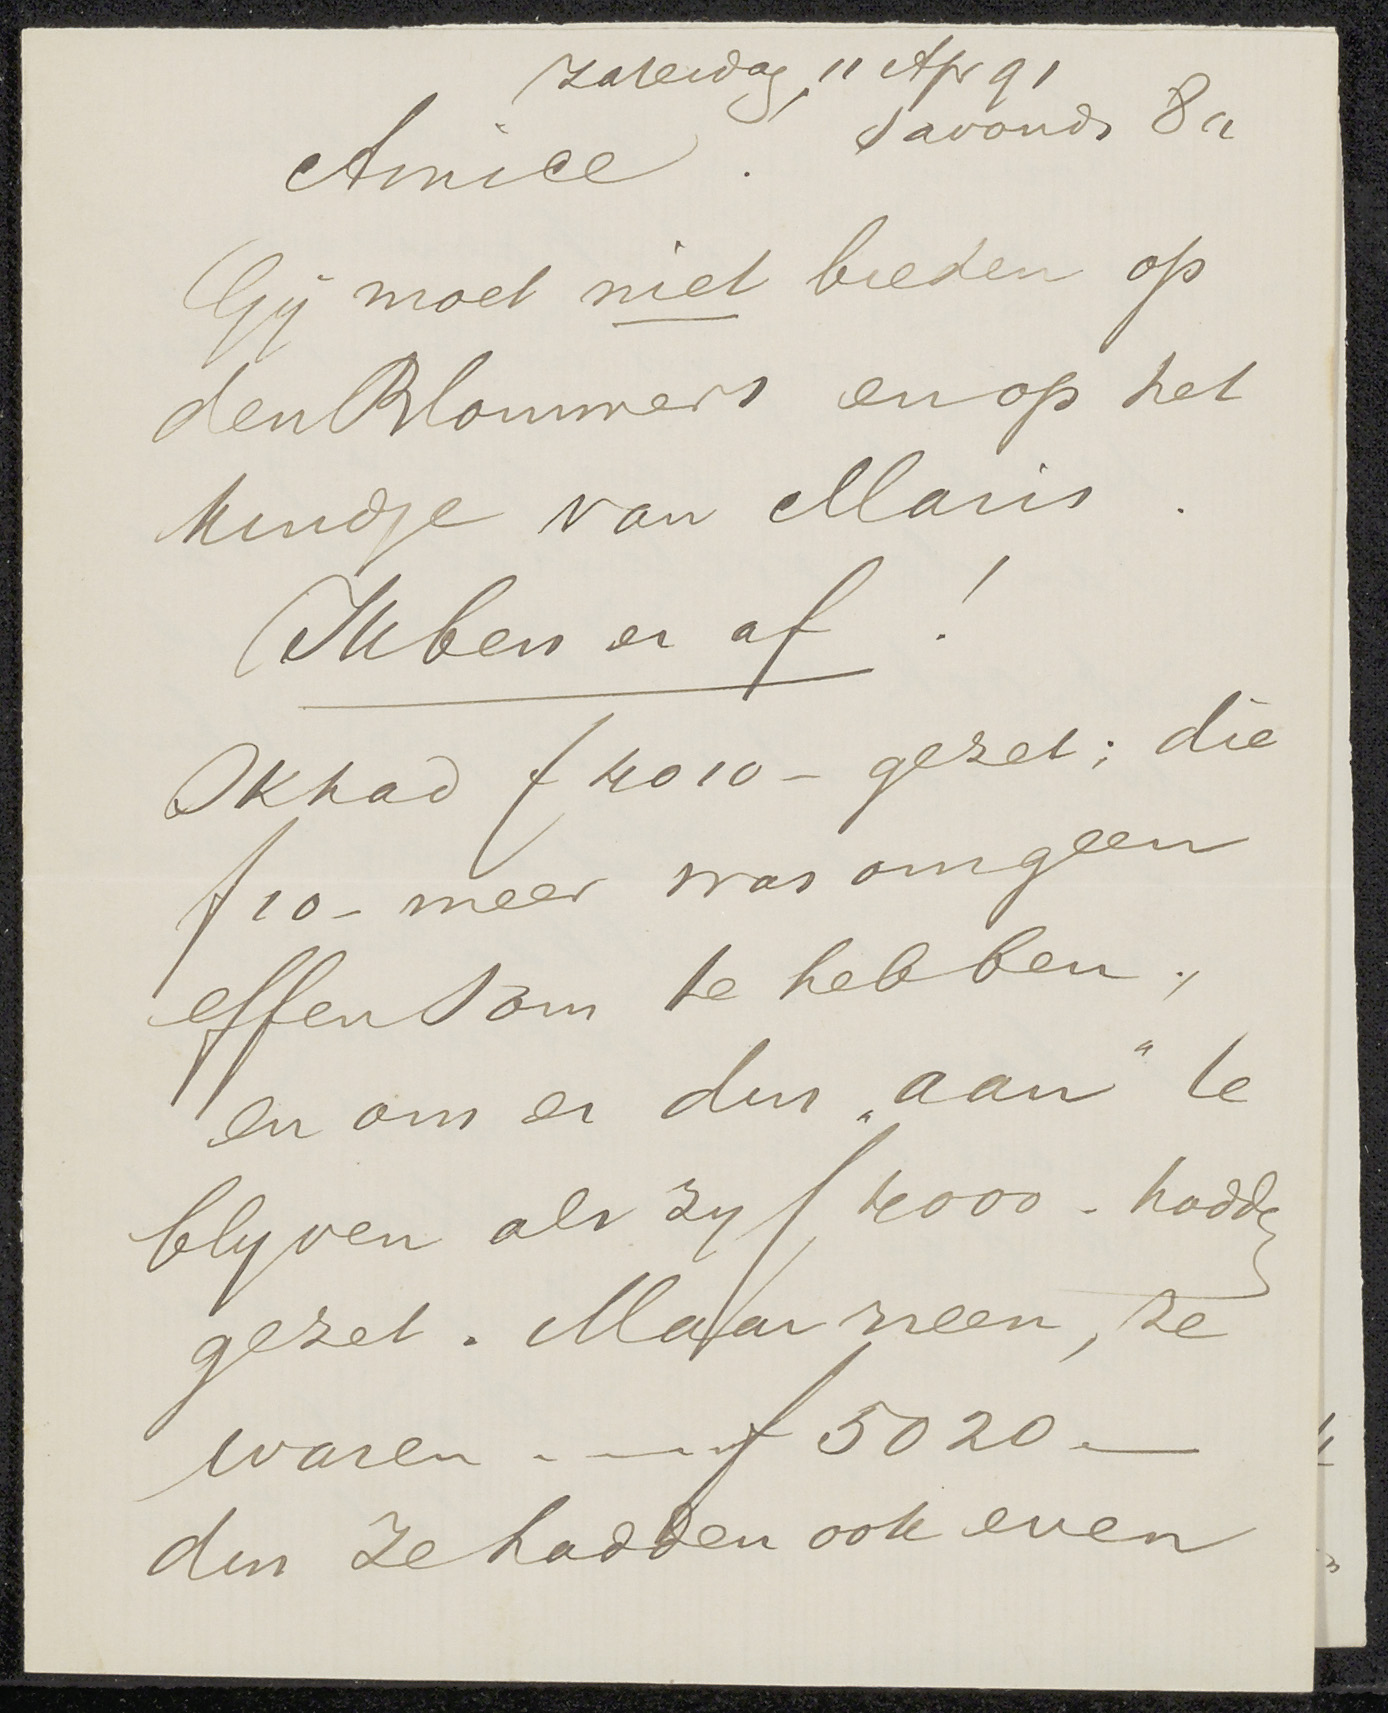 Zaterdag, 11 Apr 91
s'avonds 8 u
Amice.
Gij moet niet bieden op
den Blommers en op het
kindje van Maris.
Ik ben er af!
Ik had f 4010 – gezet; die
f 10 – meer was om geen
effen som te hebben,
en om er dus „aan" te
blyven als zy f 4000 - hadden
gezet. Maar neen, ze
waren . — . f 5020 . —
dus ze hadden ook even